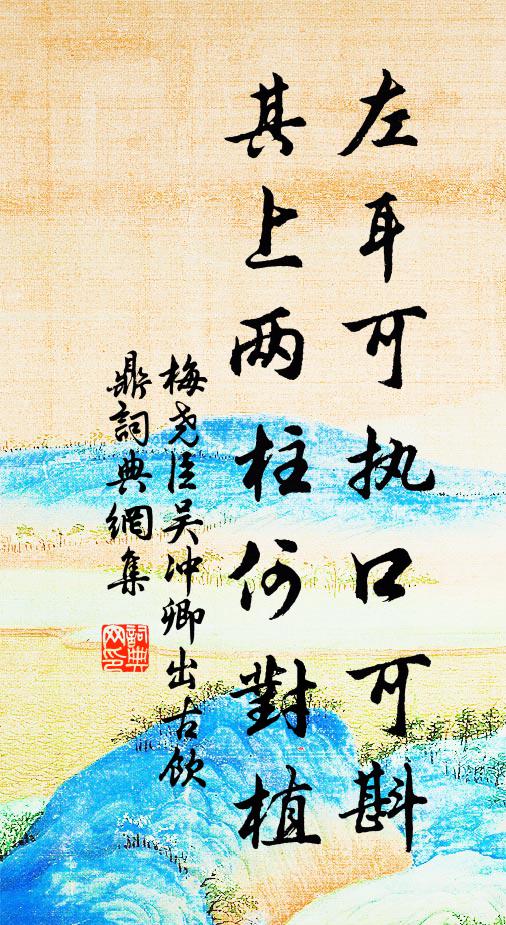 左耳可执口可斟
其上两柱何對植
梅尧臣吴冲卿出古饮
鼎詞典網集
詞典
网印